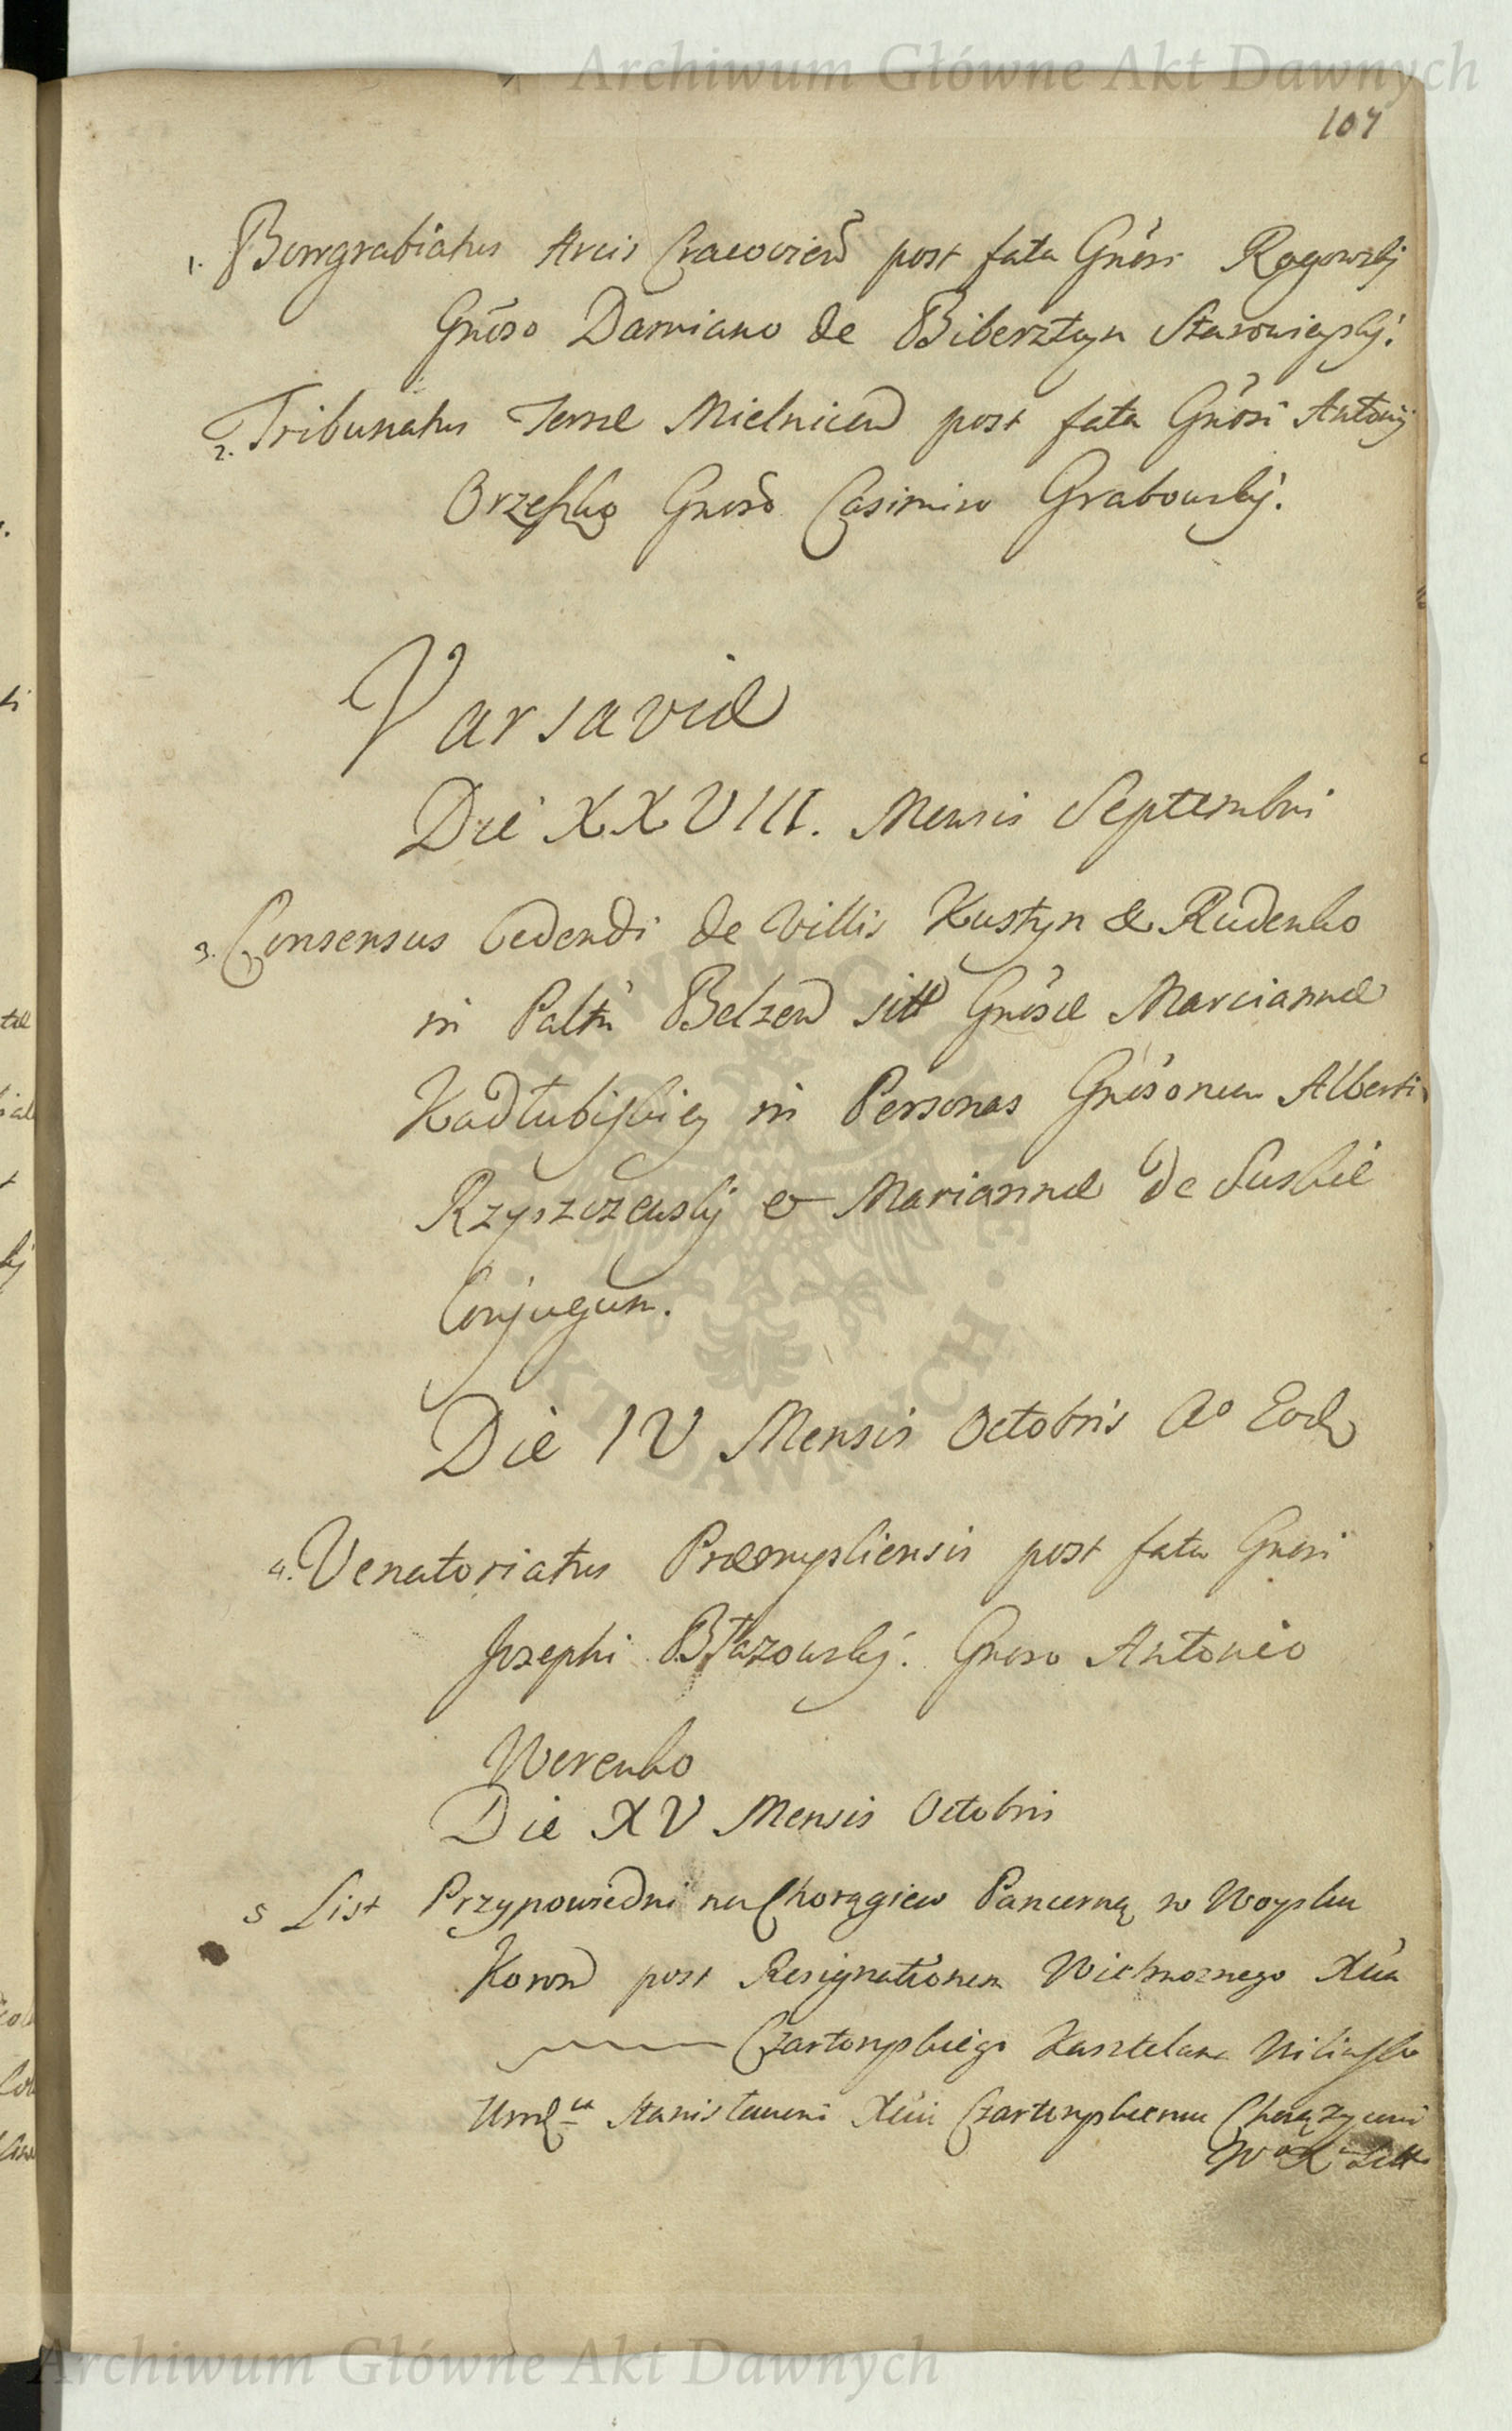 Archiwum Główne Akt Dawnych
107
1. Burgrabiatus Arcis Cracovien post fata Gnosi Rogowskij
Gnoso Damiano de Bibersztyn Starowieyskij.
2. Tribunatus Terrae Mielnicen post fata Gnosi Antonij
Orzeszko Gnoso Casimiro Grabowskij.
Varsaviae
Die XXVIII. Mensis Septembris
3. Consensus Cedendi de Villis Kustyn & Rudenko
in Paltu Belzen sitt Gnosae Mariannae
Kadłubiskiey in Personas Gnosorum Alberti
Rzyszczewskij & Mariannae de Suskie
Conjugum.
Die IV Mensis Octobris Ao Eod
4. Venatoriatus Praemysliensis post fata Gnosi
Josephi Błazowskij. Gnoso Antonio
Werenko
Die XV Mensis Octobris
5 List Przypowiedni na Chorągiew Pancerną w Woysku
Koron post Resignationem Wielmoznego Xcia
Czartoryskiego Kasztelana Wilinsko
Stanisławowi Xciu Czartoryskiemu Chorązemu
W X Litt
ARCHIWUM GŁÓWNE · AKT DAWNYCH ·
Archiwum Główne Akt Dawnych